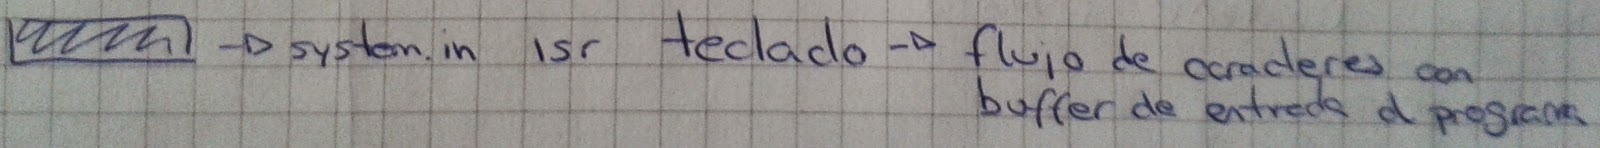 → system.in isr teclado → flujo de caracteres con
buffer de entrada al programa